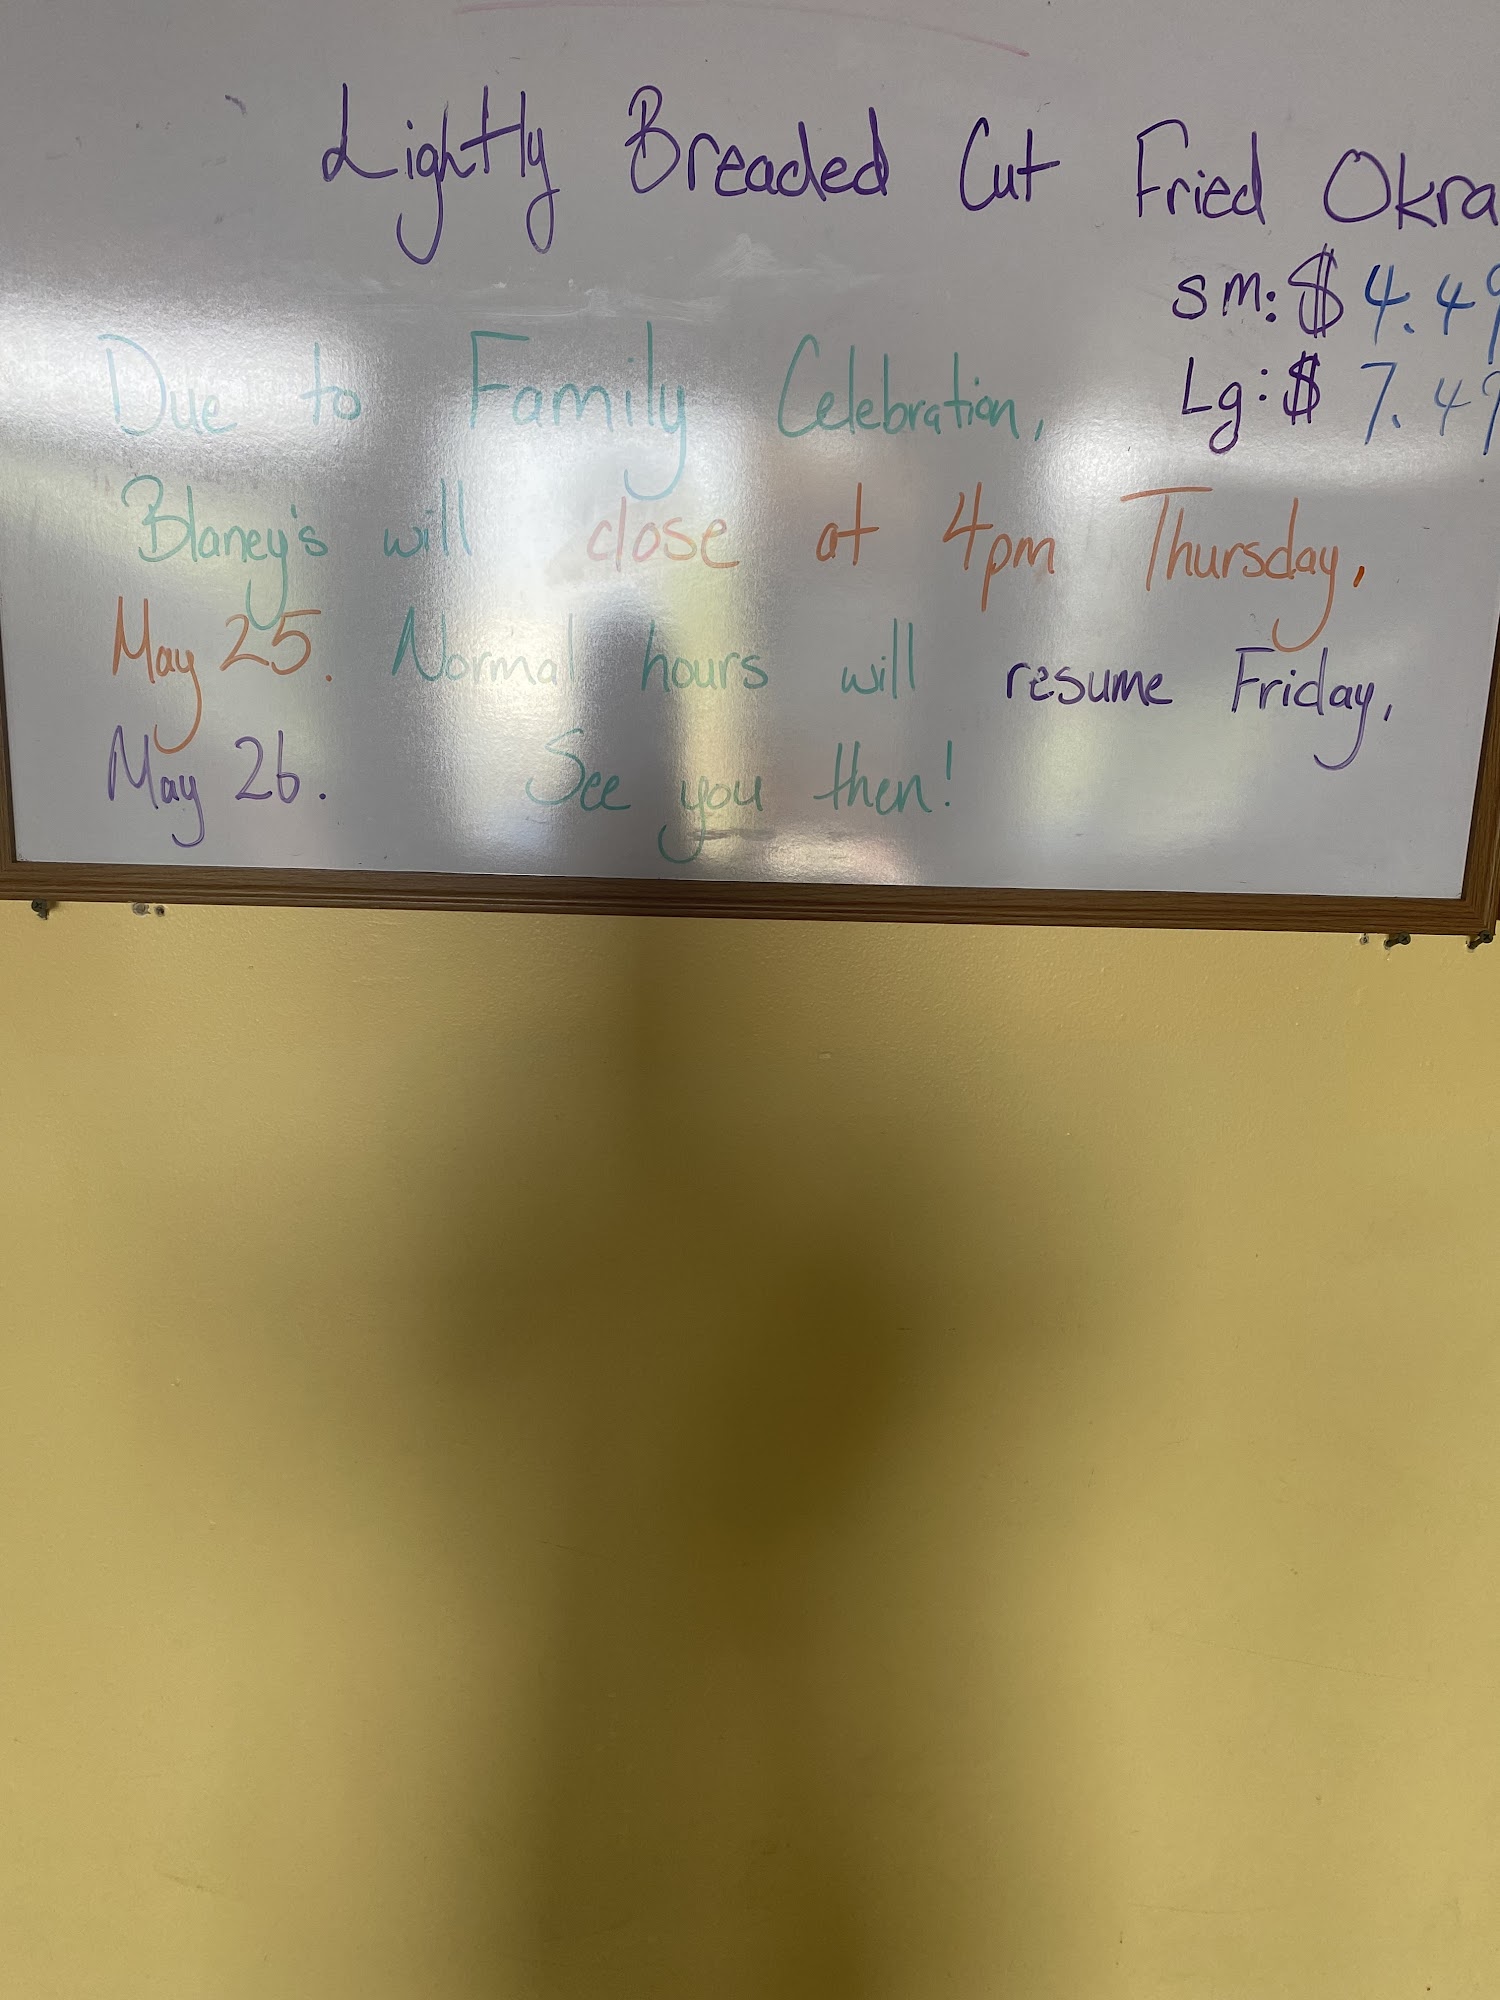 Lightly Breaded Cut Fried Okra
sm: $4.49
Lg: $7.49
Due to Family Celebration,
Blaney's will close at 4pm Thursday,
May 25. Normal hours will resume Friday,
May 26. See you then!